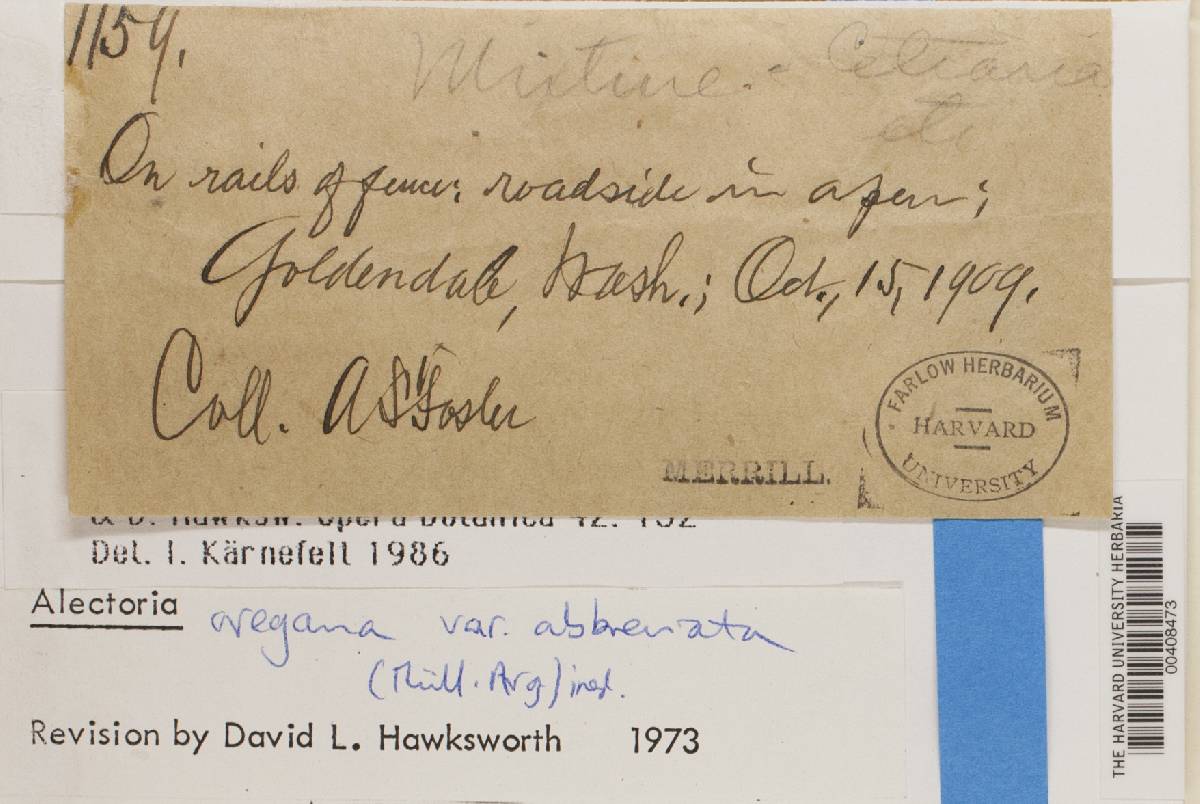 1159.
Mixture. - Cetraria
etc
On rails of fence; roadside in open;
Goldendale, Wash.; Oct., 15, 1909.
Coll. A S Foster
FARLOW HERBARIUM
HARVARD
UNIVERSITY
MERRILL.
& D. Hawksw. Opera Botanica 42: 152
Det. I. Kärnefelt 1986
Alectoria oregana var. abbreviata
(Müll. Arg.) ined.
Revision by David L. Hawksworth 1973
THE HARVARD UNIVERSITY HERBARIA
00408473